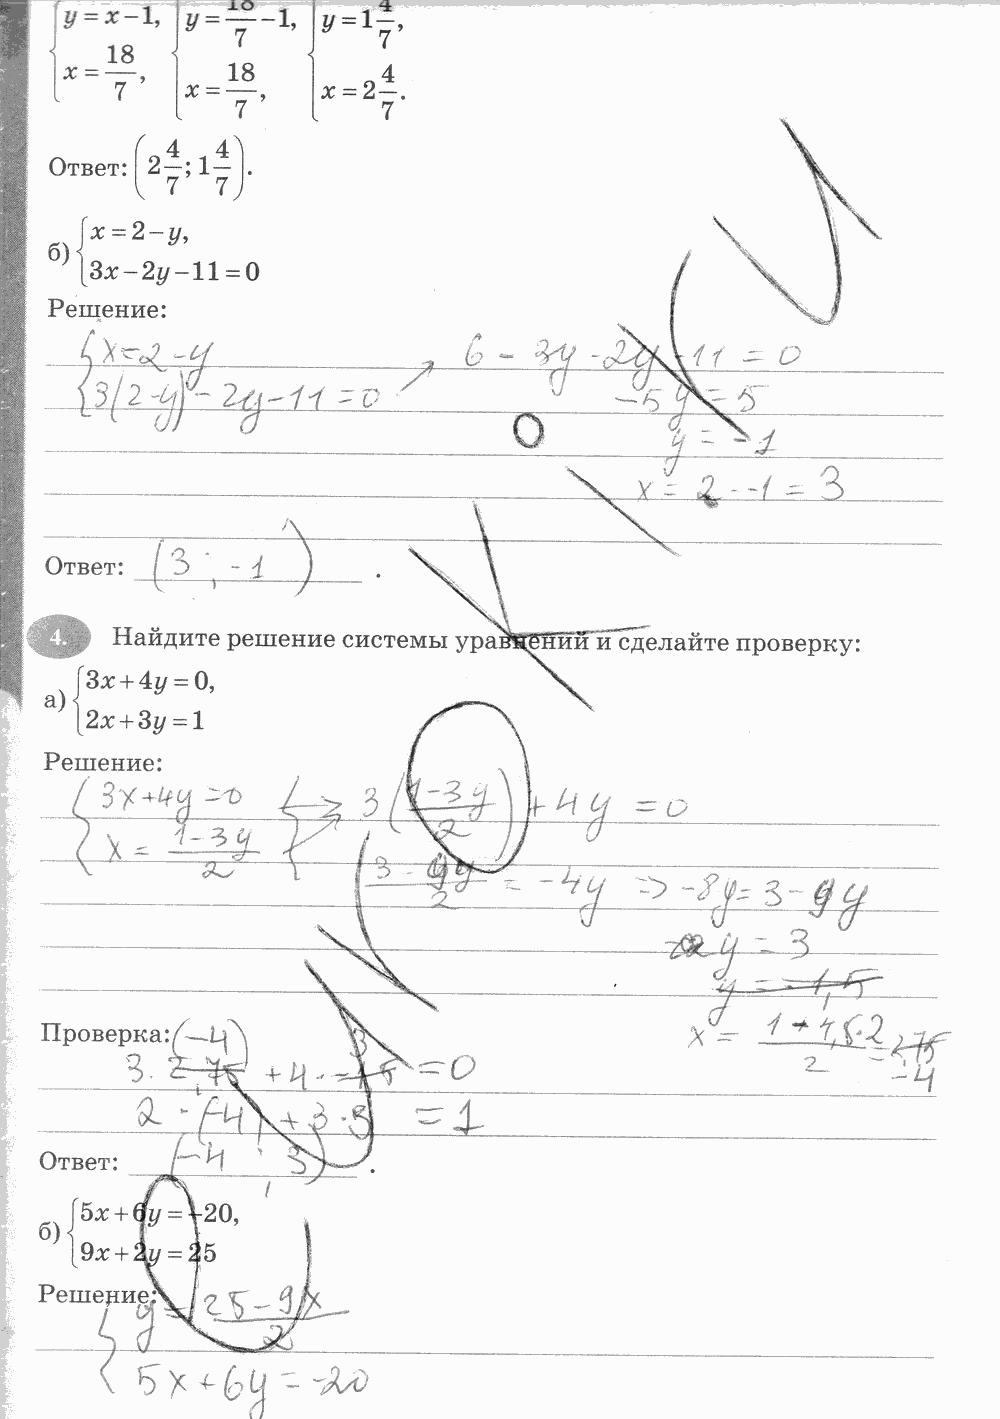 {y = x − 1, {y = 18/7 − 1, {y = 1 4/7,
x = 18/7, x = 18/7, x = 2 4/7.
Ответ: (2 4/7; 1 4/7).
б) {x = 2 − y,
3x − 2y − 11 = 0
Решение:
{x = 2 − y
{3(2 − y) − 2y − 11 = 0 ↗ 6 − 3y − 2y − 11 = 0
−5y = 5
y = −1
x = 2 − −1 = 3
Ответ: (3 ; −1) .
4. Найдите решение системы уравнений и сделайте проверку:
а) {3x + 4y = 0,
2x + 3y = 1
Решение:
{3x + 4y = 0 → 3((1 − 3y)/2) + 4y = 0
x = (1 − 3y)/2
(3 − 9y)/2 = −4y ⇒ −8y = 3 − 9y
y = 3
y = −1,5
x =
−4
Проверка: (−4) 3
3 · + 4 · = 0
2 · (−4) + 3 · 3 = 1
Ответ: (−4 ; 3) .
б) {5x + 6y = −20,
9x + 2y = 25
Решение:
{y = (25 − 9x)/2
5x + 6y = −20